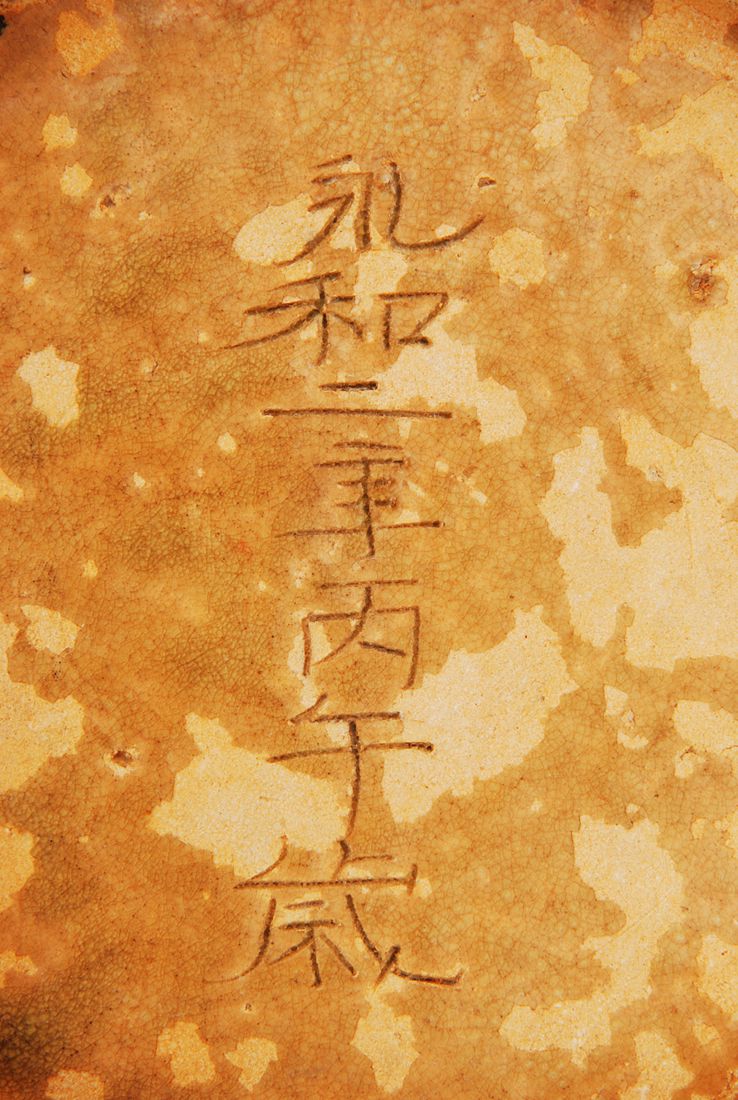 永和二年丙午歳